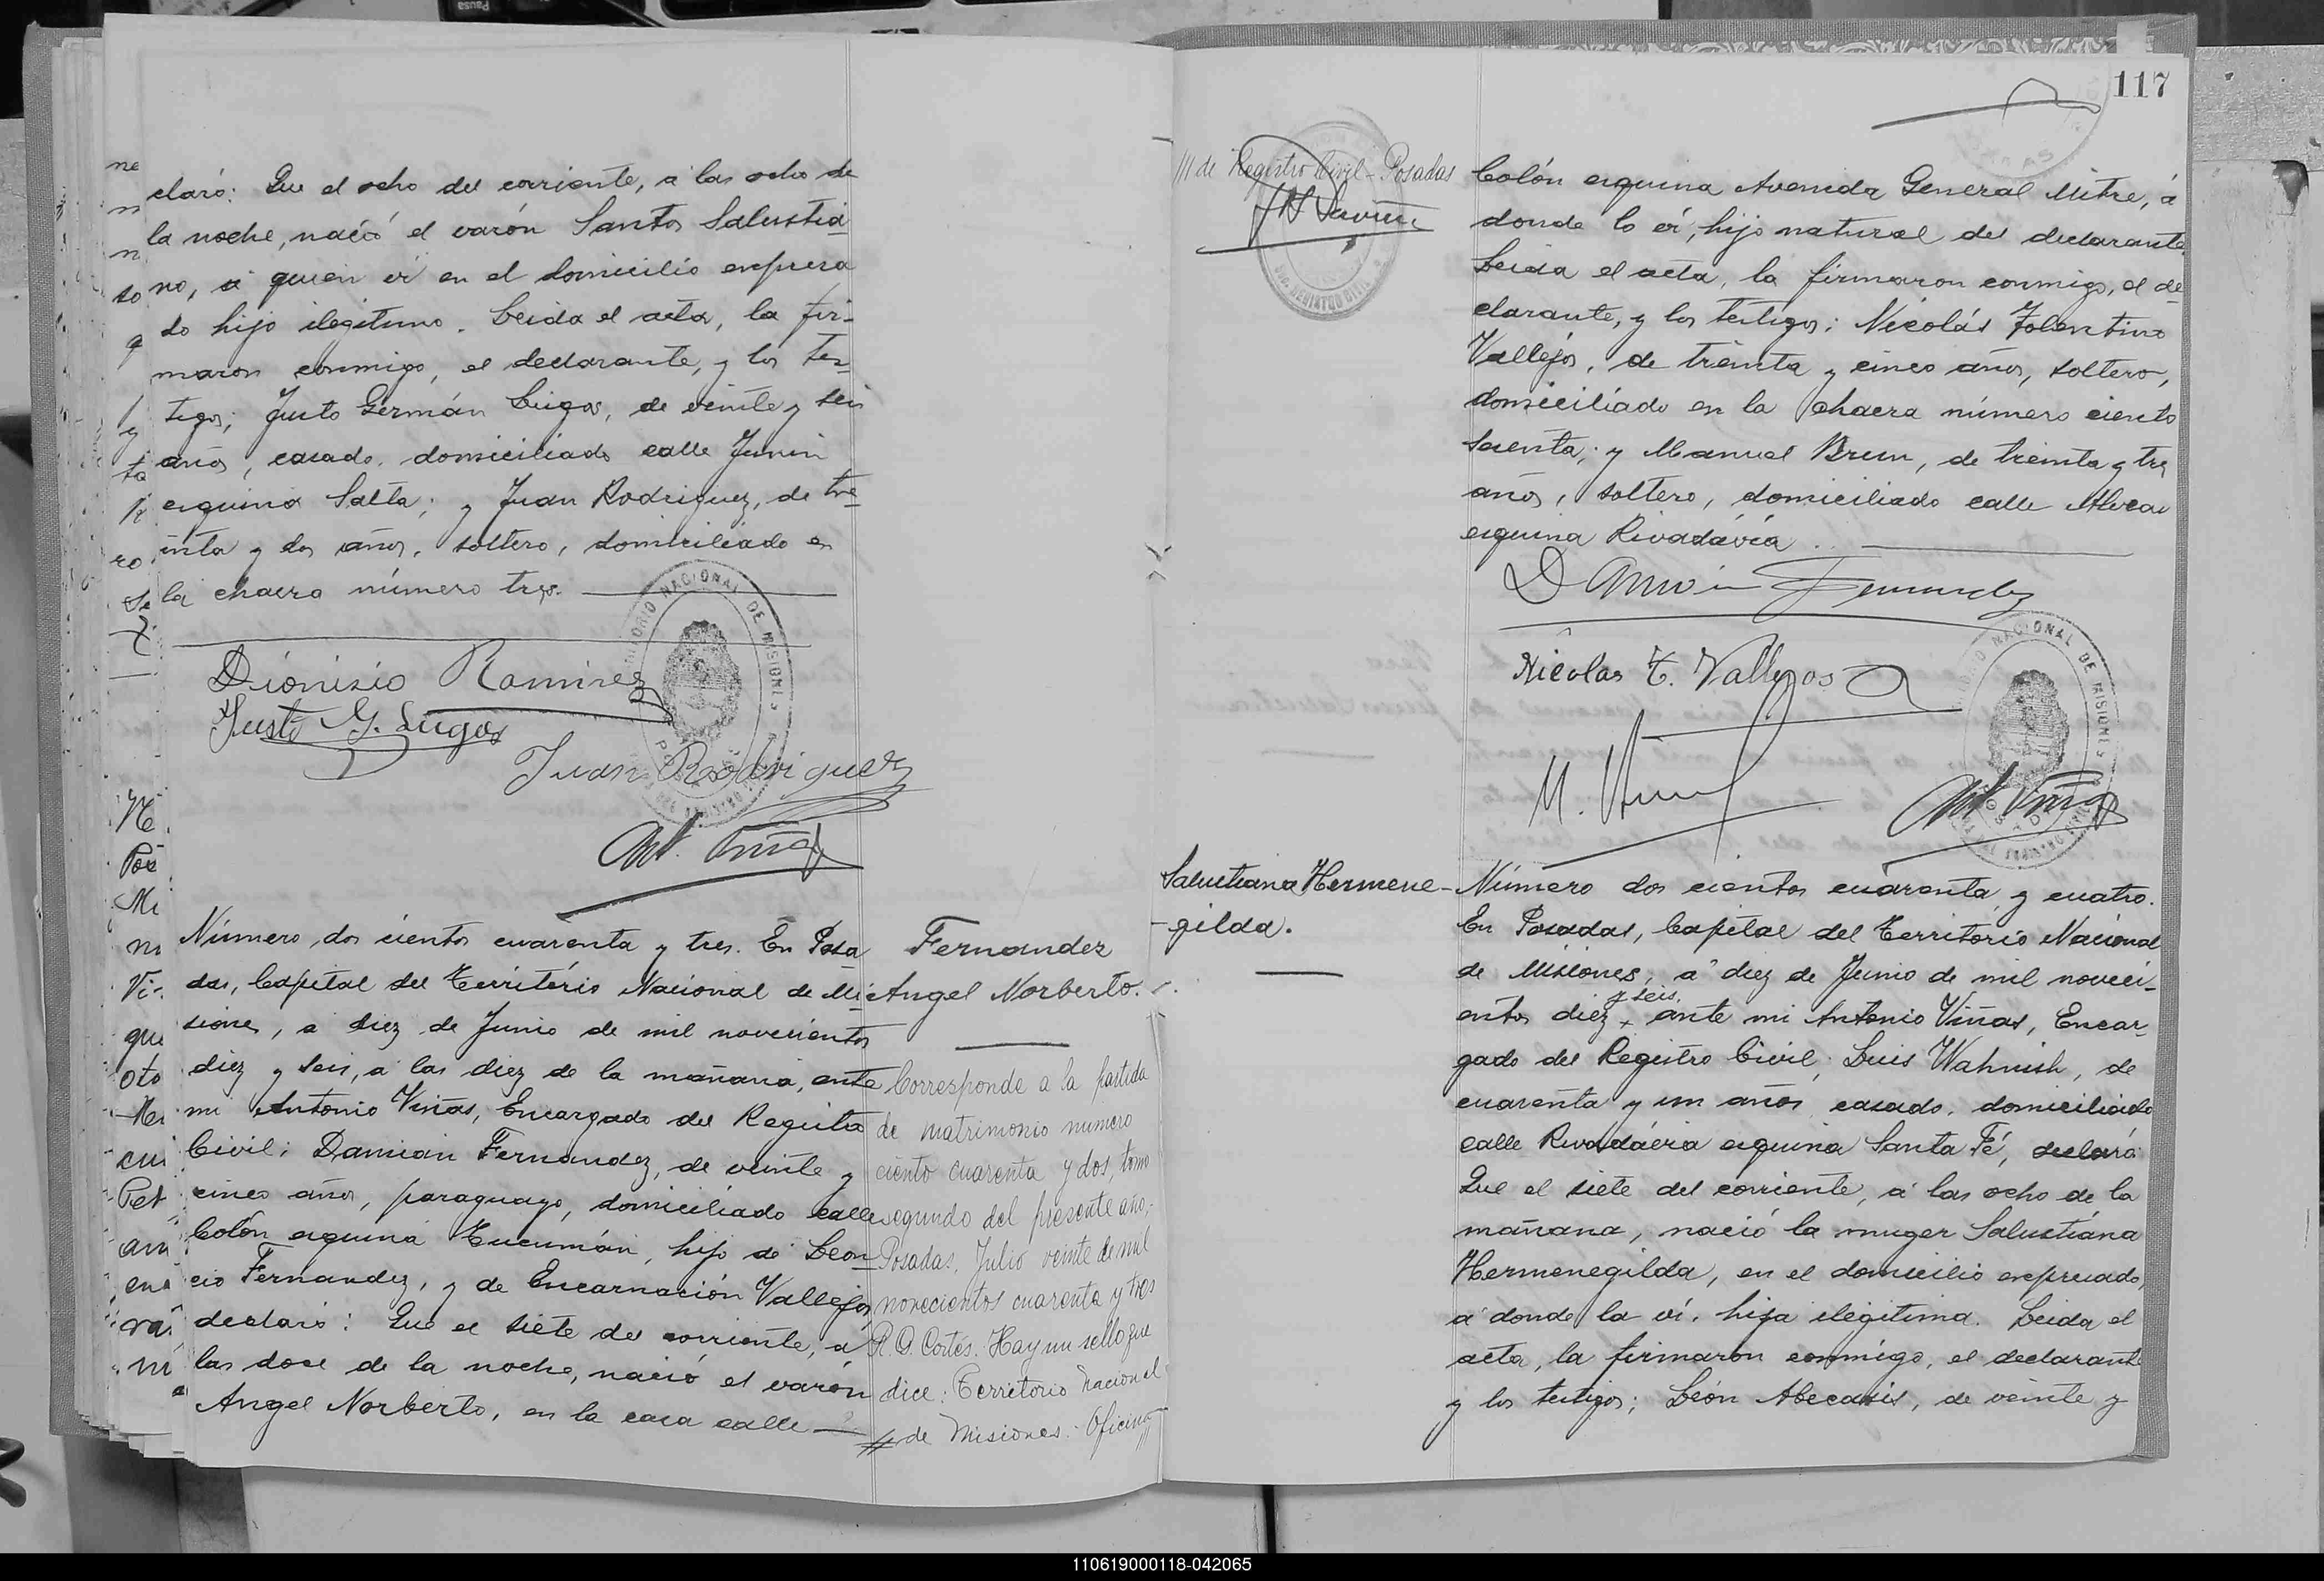 claró: Que el ocho del corriente, á las ocho de
la noche, nació el varón Santos Salustia-
no, á quien ví en el domicilio expresa
do hijo ilegitimo. Leida el acta, la fir-
maron conmigo, el declarante, y los tes-
tigos; Justo Germán Lugos, de veinte y seis
años, casado, domiciliado calle Junin
esquina Salta; y Juan Rodriguez, de tre-
inta y dos años, soltero, domiciliado en
la chacra número tres.
TERRITORIO NACIONAL DE MISIONES
Dionisio Ramirez
Justo G. Lugos
Juan Rodriguez
Ant. Viñas
Número dos cientos cuarenta y tres. En Posa
das, Capital del Território Nacional de Mi-
siones, á diez de Junio de mil novecientos
diez y seis, a las diez de la mañana, ante
mi Antonio Viñas, Encargado del Registro
Civil; Damián Fernandez, de veinte y
cinco años, paraguayo, domiciliado calle
Colón esquina Tucumán, hijo de Leon-
cio Fernandez, y de Encarnación Vallejos,
declaró: Que el siete del corriente, á
las doce de la noche, nació el varón
Angel Norberto, en la casa calle
Fernandez
Angel Norberto.
Corresponde a la partida
de matrimonio numero
ciento cuarenta y dos, tomo
segundo del presente año,-
Posadas, Julio veinte de mil
novecientos cuarenta y tres
R. A. Cortés. Hay un sello que
dice: Territorio nacional
de Misiones.- Oficina
117
/// de Registro Civil - Posadas
Colón esquina Avenida General Mitre, á
donde lo ví, hijo natural del declarante.
Leida el acta, la firmaron conmigo, el de-
clarante, y los testigos; Nicolás Tolentino
Vallejos, de treinta y cinco años, soltero,
domiciliado en la chacra número ciento
sesenta; y Manuel Brun, de treinta y tres
años, soltero, domiciliado calle
esquina Rivadávia.
Damián Fernandez
Nicolas T. Vallejos
TERRITORIO NACIONAL DE MISIONES
M. Brun
Ant. Viñas
Salustiana Hermene-
-gilda.
Número dos cientos cuarenta y cuatro.
En Posadas, Capital del Territorio Nacional
de Misiones, á diez de Junio de mil noveci-
y seis
entos diez + ante mi Antonio Viñas, Encar-
gado del Registro Civil; Luis Wahnish, de
cuarenta y un años casado, domiciliado
calle Rivadávia esquina Santa Fé, declaró:
Que el siete del corriente, á las ocho de la
mañana, nació la muger Salustiana
Hermenegilda, en el domicilio expresado,
á donde la ví, hija ilegitima. Leida el
acta, la firmaron conmigo, el declarante
y los testigos; León Abecasis, de veinte y
110619000118-042065